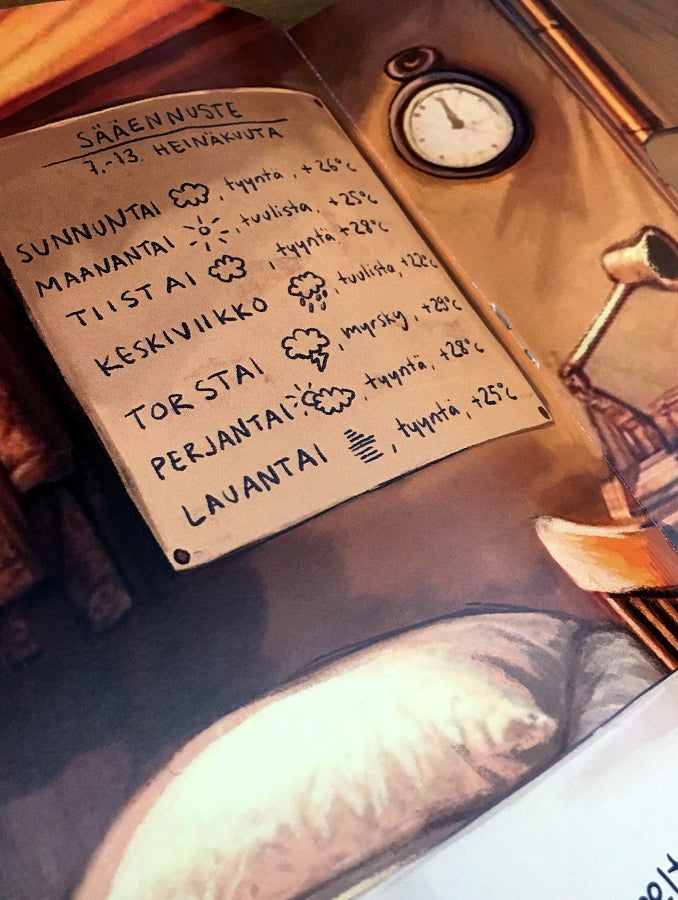 SÄÄENNUSTE
7.-13. HEINÄKUUTA
SUNNUNTAI , tyyntä, +26°C
MAANANTAI , tuulista, +25°C
TIISTAI , tyyntä +28°C
KESKIVIIKKO , tuulista, +22°C
TORSTAI , myrsky, +29°C
PERJANTAI , tyyntä, +28°C
LAUANTAI , tyyntä, +25°C